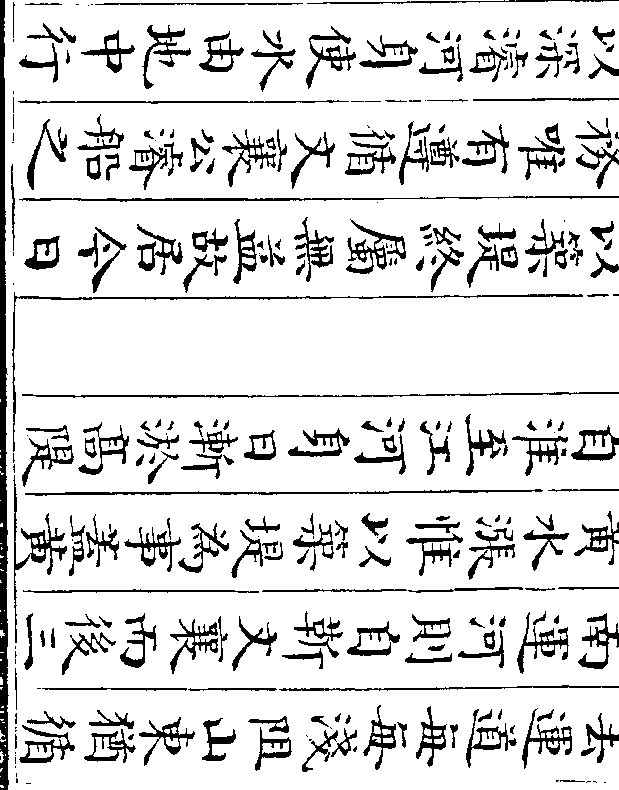 去運道每每淺阻山東猶循
南運河則自靳文襄而後三
黃水漲惟以築堤為事蓋黃
自淮至江河身日漸淤高隄
以築堤終屬無益故居今日
務唯有遵循文襄公濬船之
以深濬河身使水由地中行